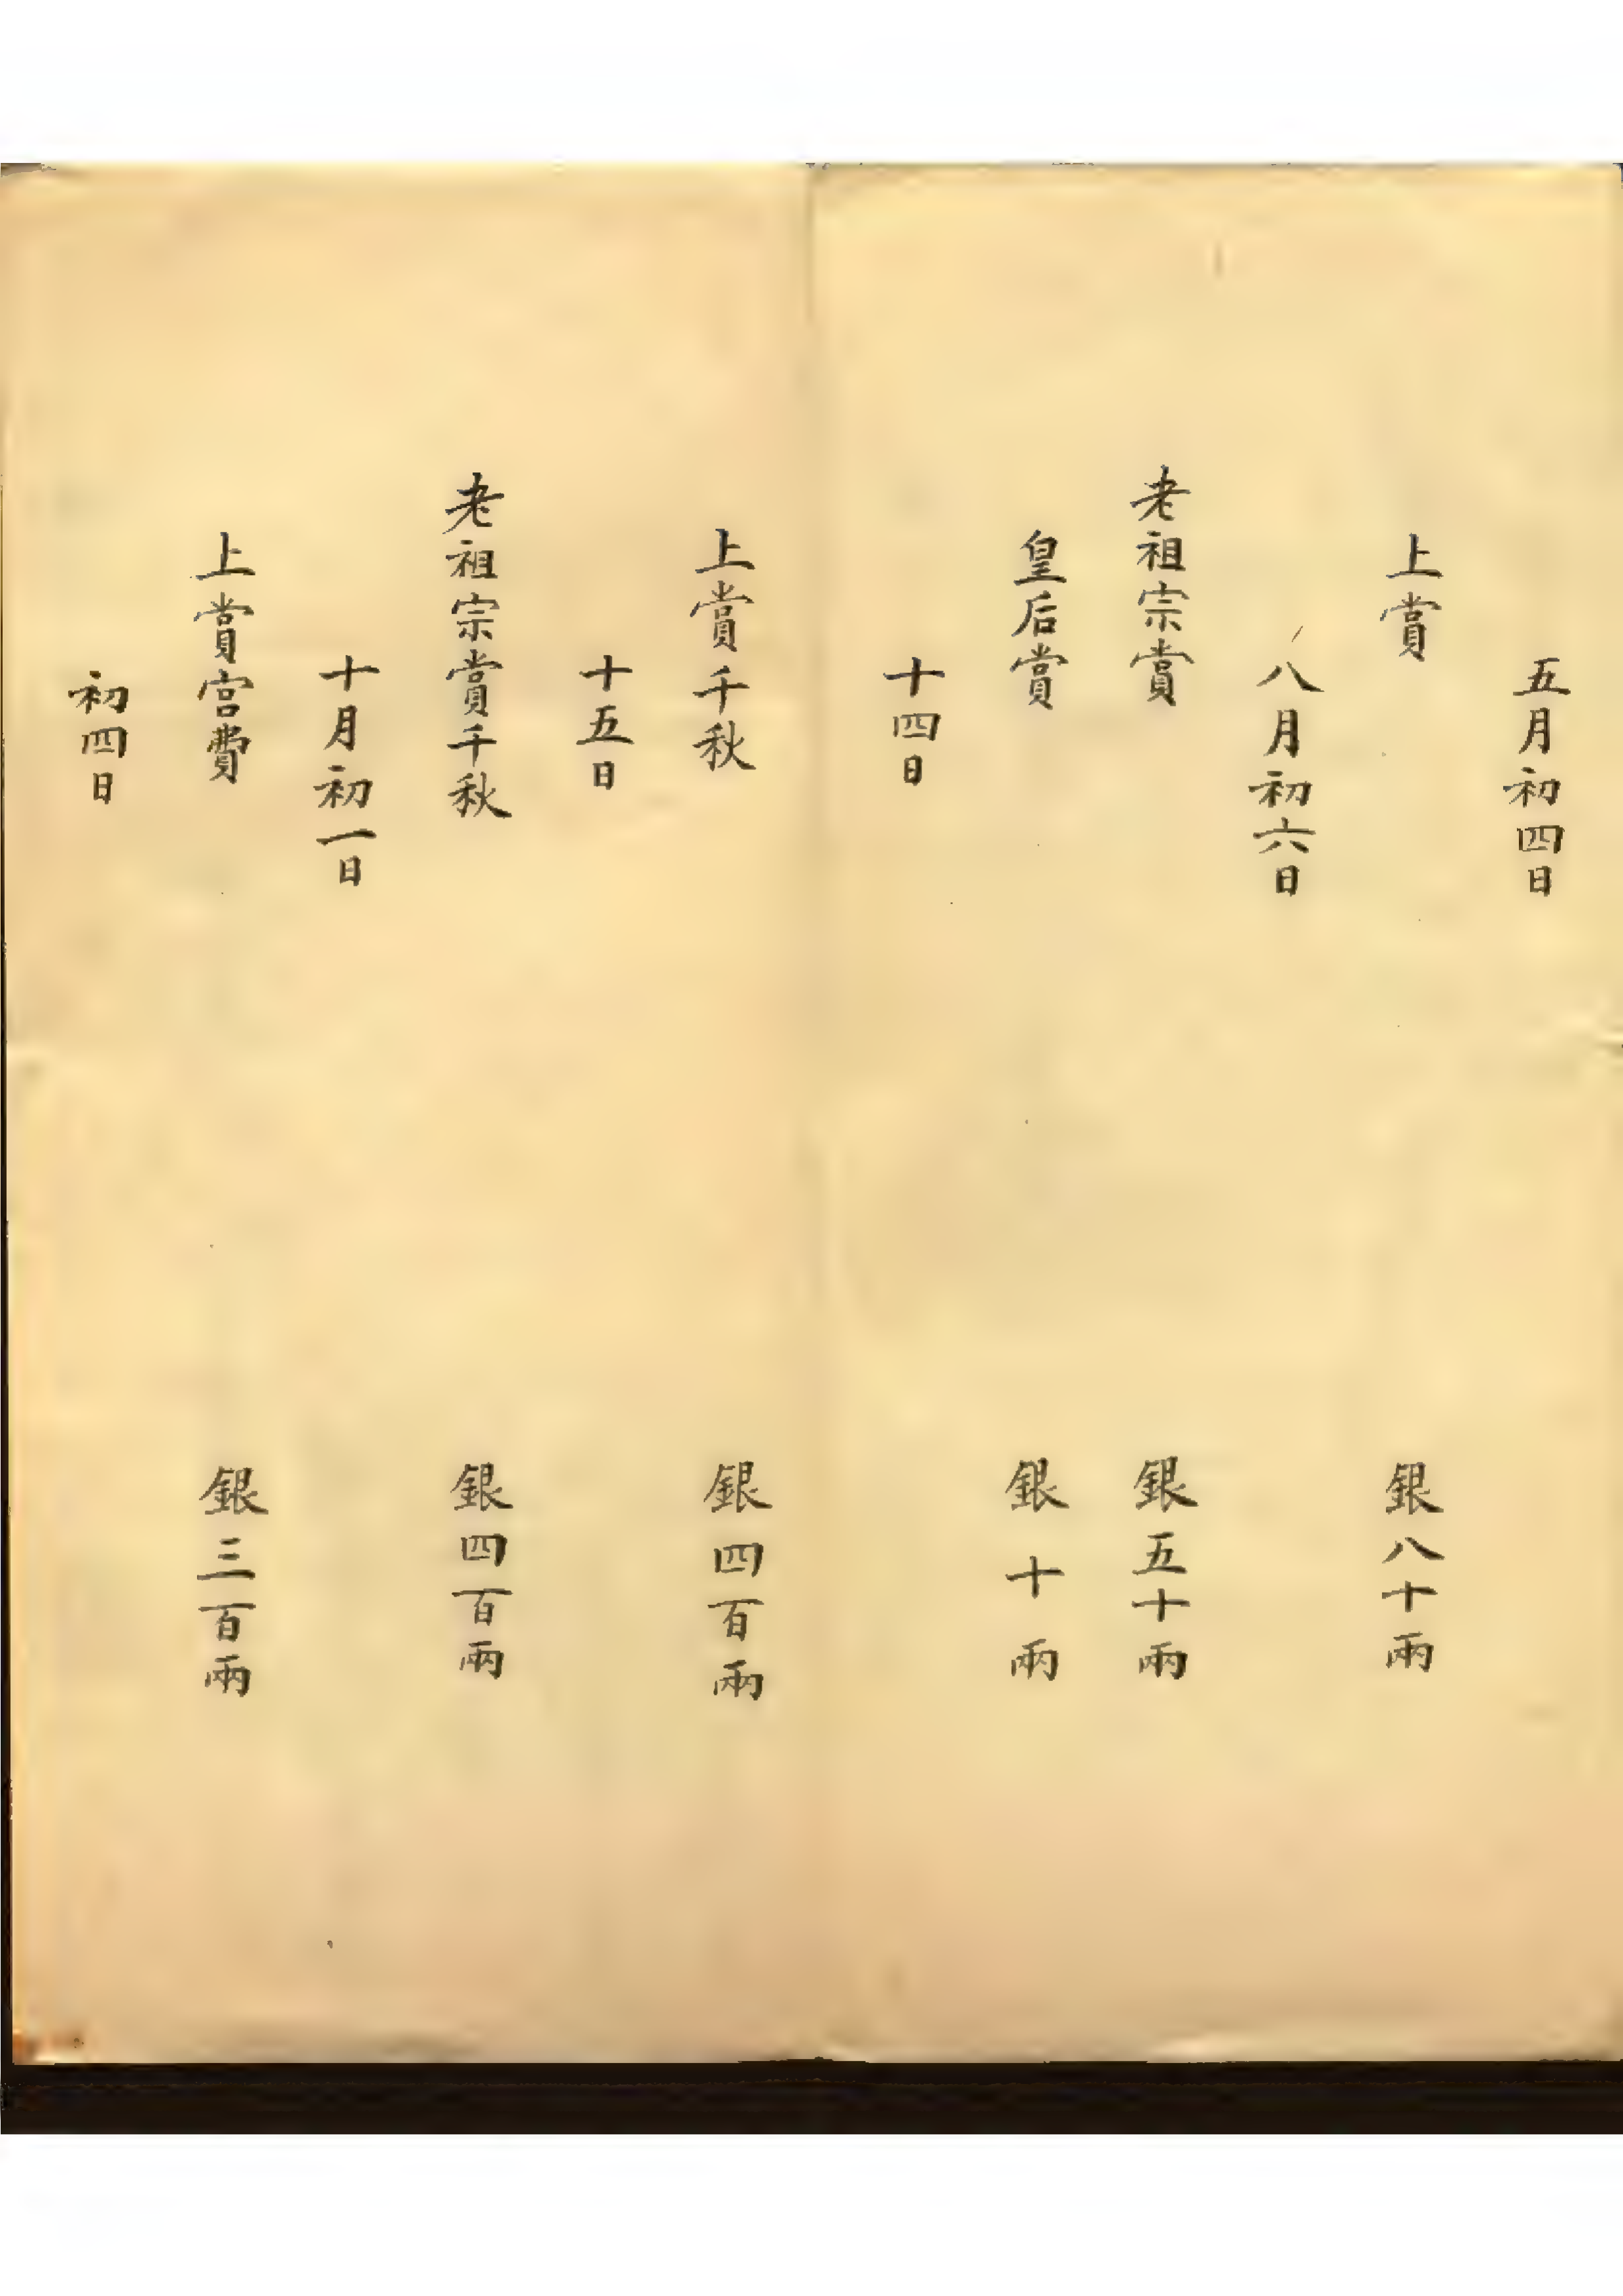 五月初四日
上賞 銀八十兩
八月初六日
老祖宗賞 銀五十兩
皇后賞 銀十兩
十四日
上賞千秋 銀四百兩
十五日
老祖宗賞千秋 銀四百兩
十月初一日
上賞宮費 銀三百兩
初四日